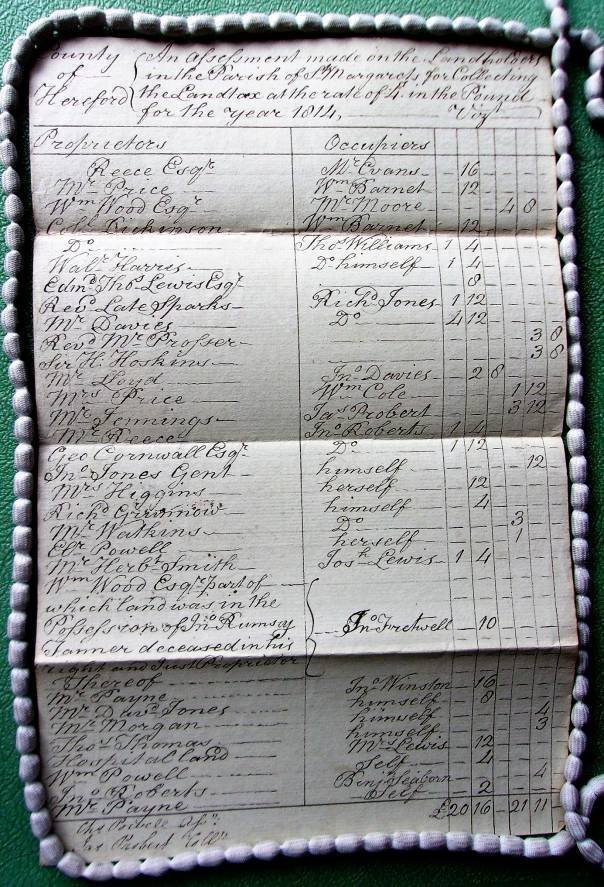 County of Hereford
An assessment made on the Landholders
in the Parish of St Margarets for Collecting
the Landtax at the rate of 4s. in the Pound
for the year 1814, Viz
Proprietors Occupiers
Reece Esqr Mr Evans 16
Mr Price Wm Barnet 12
Wm Wood Esqr Mr Moore 4 8
Colo Dickinson Wm Barnet 12
Do Thos Williams 1 4
Walr Harris Do himself 1 4
Edmd Thos Lewis Esqr 8
Revd Late Sparks Richd Jones 1 12
Mr Davies Do 4 12
Revd Mr Prosser 3 8
Sir H. Hoskins 3 8
Mr Lloyd Jno Davies 2 8
Mrs Price Wm Cole 1 12
Mr Jennings Jas Probert 3 12
Mr Reece Jno Roberts 1 4
Geo Cornwall Esqr Do 1 12
Jno Jones Gent himself 12
Mrs Higgins herself 12
Richd himself 4
Mr Watkins Do 3
Elr Powell herself 1
Mr Herbt Smith Josh Lewis 1 4
Wm Wood Esqr part of
which land was in the
Possession of Jno Rumsay Jno Fretwell 10
Tanner deceased in his
right and Just Proprietor
Thereof
Mr Payne Jno Winston 16
Mr Davd Jones himself 8
Mr Morgan himself 4
Thos Thomas himself 3
Hospital land Mr Lewis 12
Wm Powell Self 4
Jno Roberts Benjn Seaborn 4
Mr Payne Self 2
£20 16 21 11